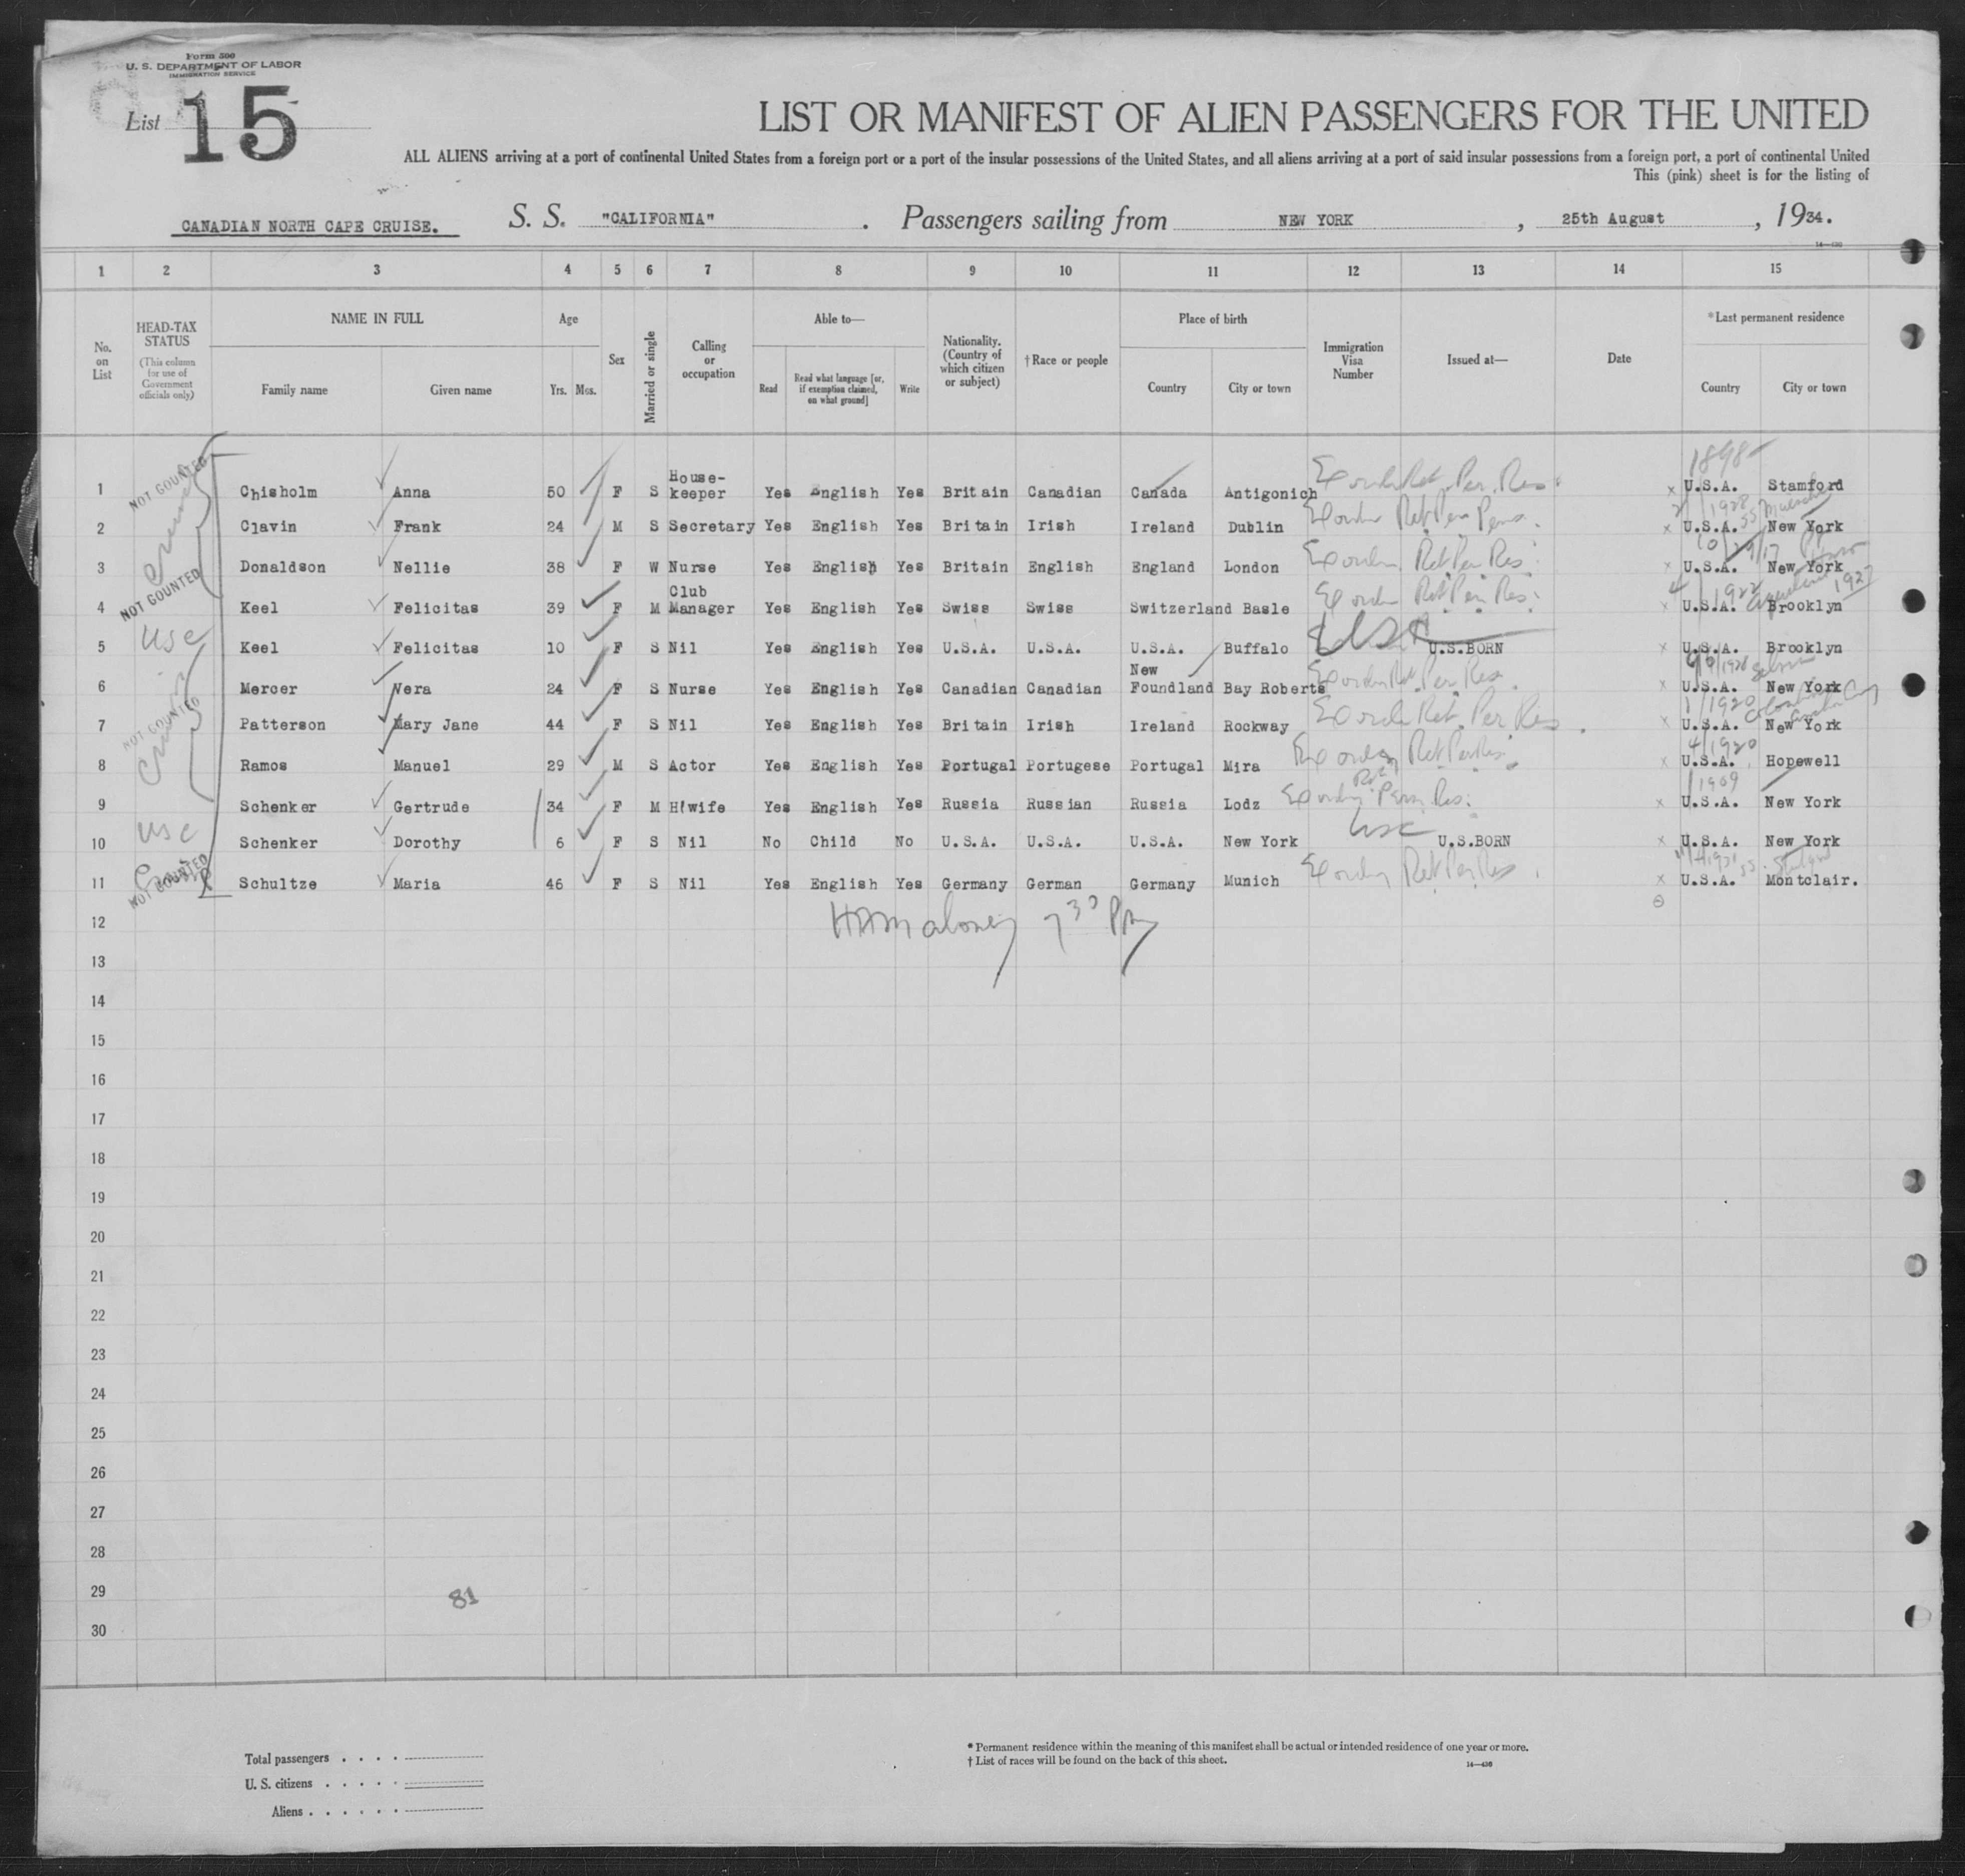 Form 500
U. S. DEPARTMENT OF LABOR
IMMIGRATION SERVICE
List 15
LIST OR MANIFEST OF ALIEN PASSENGERS FOR THE UNITED
ALL ALIENS arriving at a port of continental United States from a foreign port or a port of the insular possessions of the United States, and all aliens arriving at a port of said insular possessions from a foreign port, a port of continental United
This (pink) sheet is for the listing of
CANADIAN NORTH CAPE CRUISE. S. S. "CALIFORNIA" . Passengers sailing from NEW YORK , 25th August , 1934.
14—430
1 2 3 4 5 6 7 8 9 10 11 12 13 14 15
No. on List
HEAD-TAX STATUS
(This column for use of Government officials only)
NAME IN FULL
Family name Given name
Age
Yrs. Mos.
Sex
Married or single
Calling or occupation
Able to—
Read
Read what language [or, if exemption claimed, on what ground]
Write
Nationality. (Country of which citizen or subject)
†Race or people
Place of birth
Country City or town
Immigration Visa Number
Issued at—
Date
*Last permanent residence
Country City or town
1898
1 NOT COUNTED Chisholm Anna 50 F S House-keeper Yes English Yes Britain Canadian Canada Antigonich Ret. Per. Res. x U.S.A. Stamford
1928
2 Clavin Frank 24 M S Secretary Yes English Yes Britain Irish Ireland Dublin x U.S.A. New York
3 NOT COUNTED Donaldson Nellie 38 F W Nurse Yes English Yes Britain English England London Ret Per Res. x U.S.A. New York
1922 1927
4 Keel Felicitas 39 F M Club Manager Yes English Yes Swiss Swiss Switzerland Basle Ret Per Res. x U.S.A. Brooklyn
5 USC Keel Felicitas 10 F S Nil Yes English Yes U.S.A. U.S.A. U.S.A. Buffalo USC U.S.BORN x U.S.A. Brooklyn
6 Mercer Vera 24 F S Nurse Yes English Yes Canadian Canadian New Foundland Bay Roberts Ret. Per. Res. x U.S.A. New York
1/1920
7 NOT COUNTED Patterson Mary Jane 44 F S Nil Yes English Yes Britain Irish Ireland Rockway Ret. Per Res. x U.S.A. New York
4/1920
8 Ramos Manuel 29 M S Actor Yes English Yes Portugal Portugese Portugal Mira Ret Per Res. x U.S.A. Hopewell
1909
9 Schenker Gertrude 34 F M H'wife Yes English Yes Russia Russian Russia Lodz Ret Perm Res. x U.S.A. New York
10 USC Schenker Dorothy 6 F S Nil No Child No U.S.A. U.S.A. U.S.A. New York USC U.S.BORN x U.S.A. New York
11 NOT COUNTED Schultze Maria 46 F S Nil Yes English Yes Germany German Germany Munich Ret Per Res. x U.S.A. Montclair.
12 Maloney 7 30 PM
13
14
15
16
17
18
19
20
21
22
23
24
25
26
27
28
29 81
30
Total passengers . . . .
U. S. citizens . . . . .
Aliens . . . . . .
* Permanent residence within the meaning of this manifest shall be actual or intended residence of one year or more.
† List of races will be found on the back of this sheet. 14—430